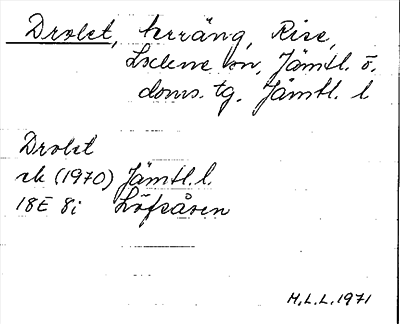 Drolet, terräng, Rise,
sn, Jämtl. ö.
doms. tg. Jämtl. l
Drolet
ek (1970) Jämtl. l.
18E 8i Löfsåsen
M.L.L. 1971